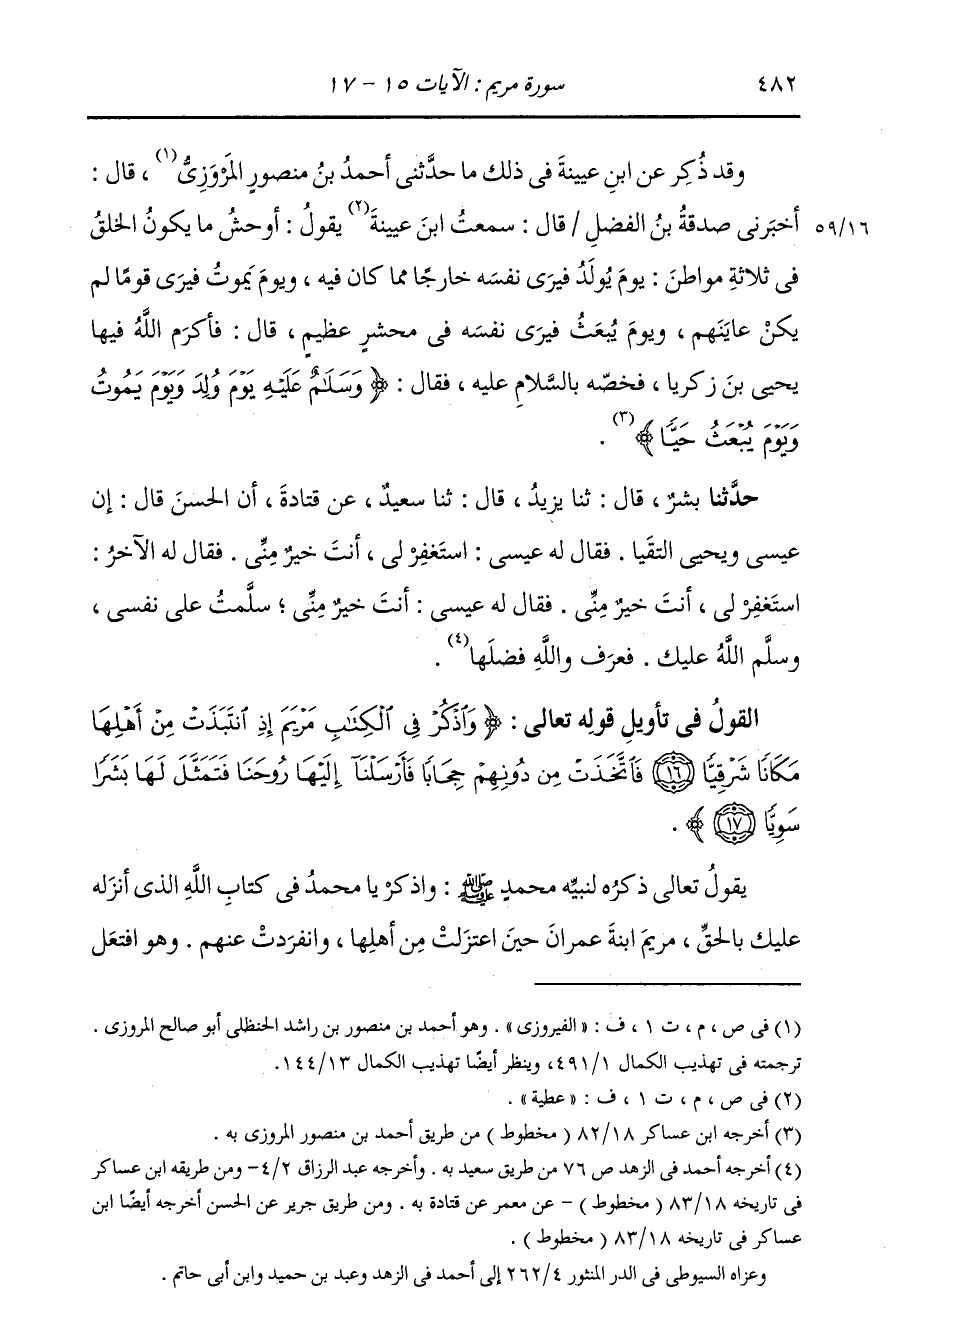 ٤٨٢ سورة مريم : الآيات ١٥ - ١٧
وقد ذُكِر عن ابنِ عيينةَ فى ذلك ما حدَّثنى أحمدُ بنُ منصورٍ المَرْوَزِىُّ(١) ، قال :
١٦/٥٩ أخبَرنى صدقةُ بنُ الفضلِ / قال : سمعتُ ابنَ عيينةَ(٢) يقولُ : أوحشُ ما يكونُ الخلقُ
فى ثلاثةِ مواطنَ : يومَ يُولَدُ فيرَى نفسَه خارجًا مما كان فيه ، ويومَ يَموتُ فيرَى قومًا لم
يكنْ عايَنَهم ، ويومَ يُبعَثُ فيرَى نفسَه فى محشرٍ عظيمٍ ، قال : فأكرَم اللَّهُ فيها
يحيى بنَ زكريا ، فخصّه بالسَّلامِ عليه ، فقال : ﴿ وَسَلَٰمٌ عَلَيْهِ يَوْمَ وُلِدَ وَيَوْمَ يَمُوتُ
وَيَوْمَ يُبْعَثُ حَيًّا ﴾(٣) .
حدَّثنا بشرٌ ، قال : ثنا يزيدُ ، قال : ثنا سعيدٌ ، عن قتادةَ ، أن الحسنَ قال : إن
عيسى ويحيى التقَيا . فقال له عيسى : استَغفِرْ لى ، أنتَ خيرٌ مِنِّى . فقال له الآخرُ :
استَغفِرْ لى ، أنتَ خيرٌ مِنِّى . فقال له عيسى : أنتَ خيرٌ مِنِّى ؛ سلَّمتُ على نفسى ،
وسلَّم اللَّهُ عليك . فعرَف واللَّهِ فضلَها(٤) .
القولُ فى تأويلِ قوله تعالى : ﴿ وَٱذْكُرْ فِى ٱلْكِتَٰبِ مَرْيَمَ إِذِ ٱنتَبَذَتْ مِنْ أَهْلِهَا
مَكَانًا شَرْقِيًّا ١٦ فَٱتَّخَذَتْ مِن دُونِهِمْ حِجَابًا فَأَرْسَلْنَآ إِلَيْهَا رُوحَنَا فَتَمَثَّلَ لَهَا بَشَرًا
سَوِيًّا ١٧ ﴾ .
يقولُ تعالى ذكرُه لنبيِّه محمدٍ ﷺ : واذكرْ يا محمدُ فى كتابِ اللَّهِ الذى أنزَله
عليك بالحقِّ ، مريمَ ابنةَ عمرانَ حينَ اعتزلَتْ مِن أهلِها ، وانفردَتْ عنهم . وهو افتعَل
(١) فى ص ، م ، ت ١ ، ف : « الفيروزى » . وهو أحمد بن منصور بن راشد الحنظلى أبو صالح المروزى .
ترجمته فى تهذيب الكمال ٤٩١/١، وينظر أيضًا تهذيب الكمال ١٤٤/١٣.
(٢) فى ص ، م ، ت ١ ، ف : « عطية » .
(٣) أخرجه ابن عساكر ٨٢/١٨ ( مخطوط ) من طريق أحمد بن منصور المروزى به .
(٤) أخرجه أحمد فى الزهد ص ٧٦ من طريق سعيد به . وأخرجه عبد الرزاق ٤/٢- ومن طريقه ابن عساكر
فى تاريخه ٨٣/١٨ ( مخطوط ) - عن معمر عن قتادة به . ومن طريق جرير عن الحسن أخرجه أيضًا ابن
عساكر فى تاريخه ٨٣/١٨ ( مخطوط ) .
وعزاه السيوطى فى الدر المنثور ٢٦٢/٤ إلى أحمد فى الزهد وعبد بن حميد وابن أبى حاتم .